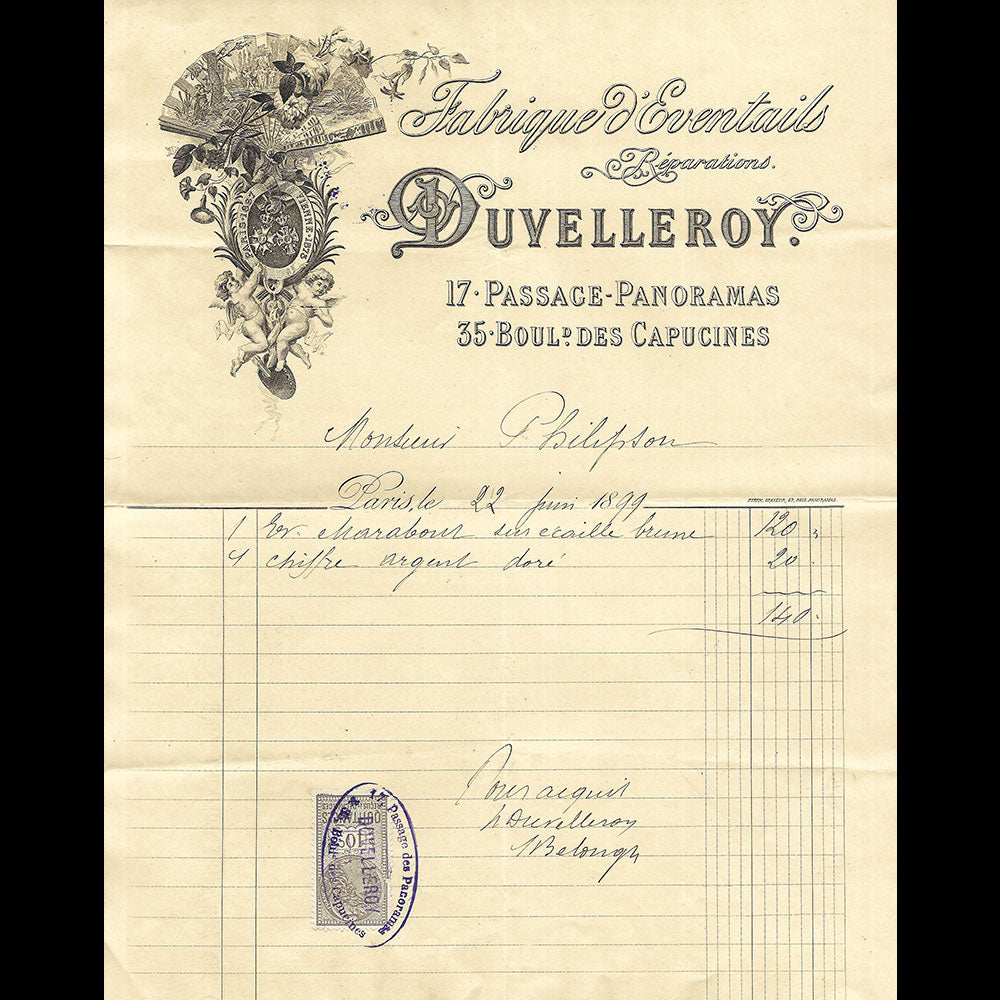 Fabrique d'Eventails
Réparations.
DUVELLEROY.
PARIS·1867 VIENNE·1873
17·PASSAGE-PANORAMAS
35·BOULD. DES CAPUCINES
Monsieur Philipson
Paris, le 22 Juin 1899
1 Ev. Marabout sur écaille brune 120 "
1 chiffre argent doré 20 "
140 "
Pour acquit
p Duvelleroy
17 Passage des Panoramas
DUVELLEROY
35 Boulд des Capucines
10c